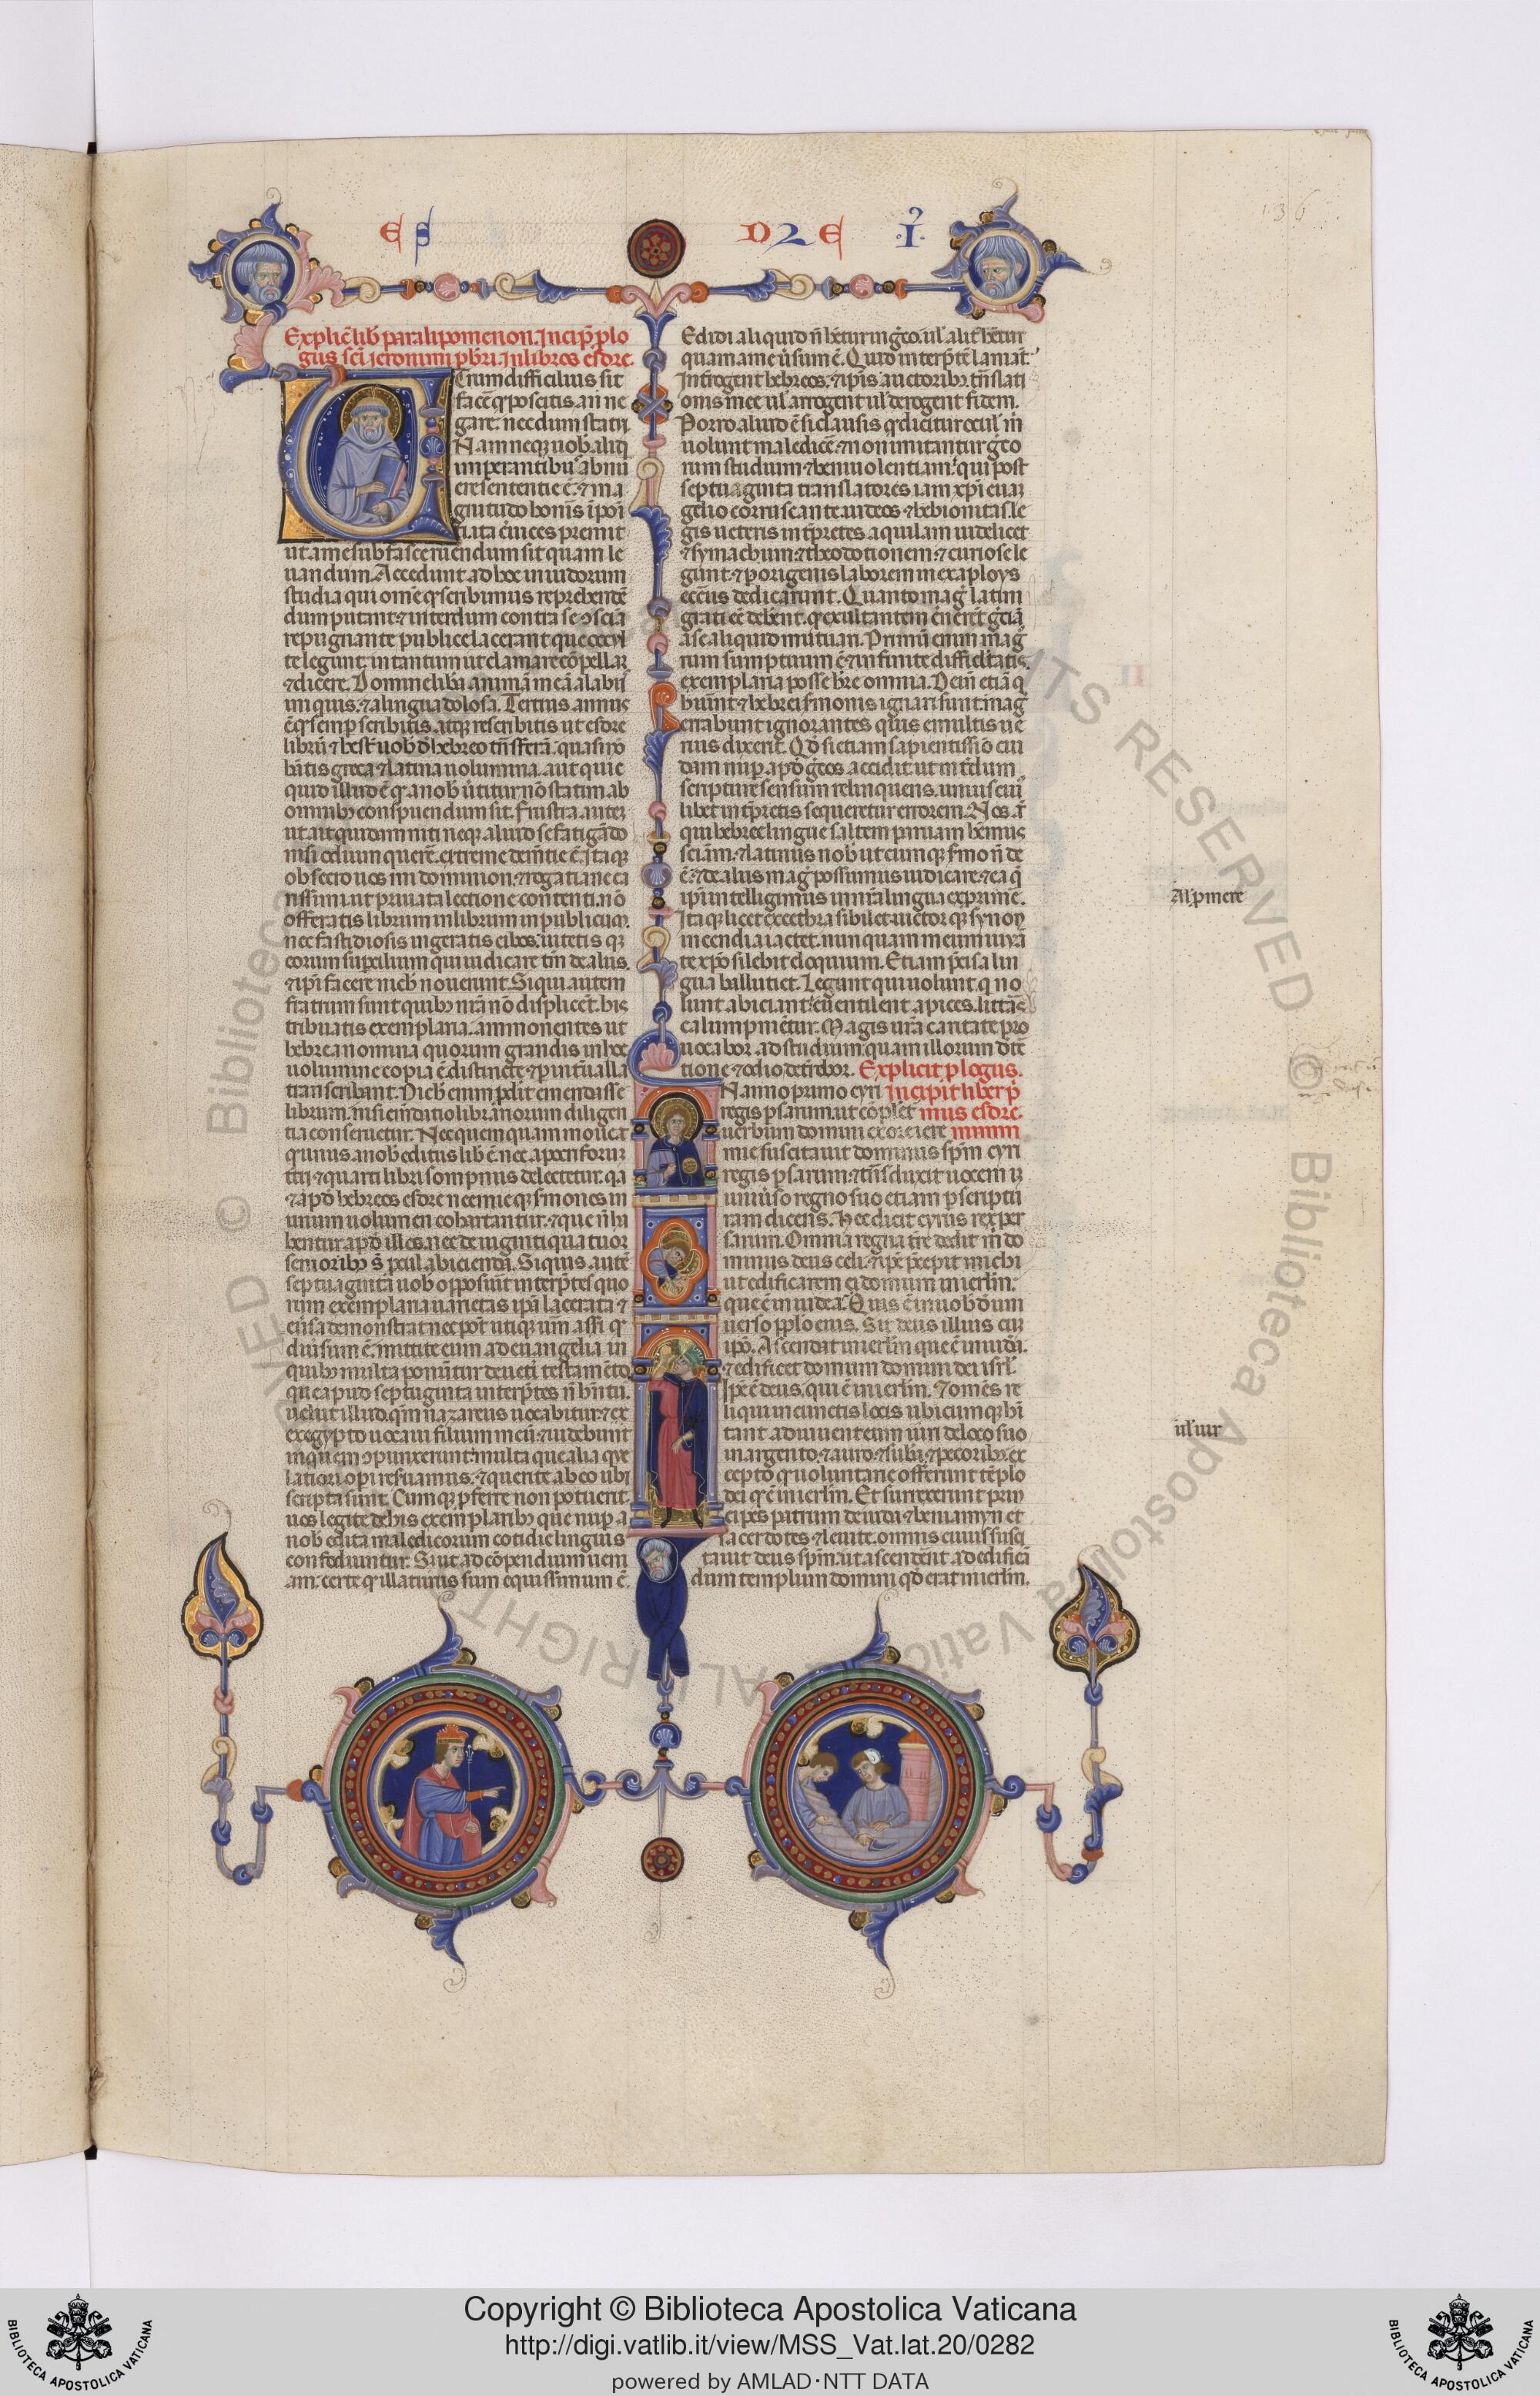 ES DRE .I.
136
Explic̄ lib̄ paralipomenon. Incip̄ p̄lo
gus sc̄i ieronimi p̄bri. in libros esdre.
Utrum difficilius sit
facē q̄ poscitis. an ne
gare: necdum statuj
Nam neq; uob̄ aliq̄
imperantibus abnu
ere sententie ē. ⁊ ma
gnitudo honis īpoī
ti. ita c̄uices premit
ut ante sub fasce ruendum sit quam le
uandum. Accedunt ad hoc inuidorum
studia qui ome q̄ scribimus reprehendē
dum putant. ⁊ interdum contra se ɔsciā
repugnante publice lacerant que occul
te legunt. in tantum ut clamare cōpellar
⁊ dicere. Domine libera animā meā a labiis
iniquis. ⁊ a lingua dolosa. Tertius annus
ē q̄ semp̄ scribitis. atq; rescribitis ut esdre
librū ⁊ hest̄ uob̄ de hebreo tn̄sferā. quasi nō
hatis greca ⁊ latina uolumina. aut quic
quid illud ē q̄ a nob̄ ūtitur nō statim ab
omnib; conspuendum sit. Frustra. autē
ut ait quidam niti neq; aliud se fatigādo
nisi odium querē. extreme demētie ē. Itaq;
obsecro uos mi domnion. ⁊ rogatiane ca
rissimi. ut priuata lectione contenti. nō
offeratis librum in publicum.
nec fastidiosis ingeratis cibos. uitetis q;
eorum supcilium qui iudicare tm̄ de aliis.
⁊ ip̄i facere nich̄ nouerunt. Siqui autem
fratrum sunt quib; nrā nō displicēt. his
tribuatis exemplaria. ammonentes ut
hebrea nomina quorum grandis in hoc
uolumine copia ē distincte. ⁊ p̄ int̄ualla
transcribant. Nich̄ enim p̄derit emendasse
librum. nisi emēditio librariorum diligen
tia conseruetur. Nec quemquam moueat
q̄ unus a nob̄ editus lib̄ ē. nec apocriforum
t̄tij ⁊ quarti libri sompniis delectetur. q̄a
⁊ ap̄d hebreos esdre neemieq; sermones in
unum uolumen cohartantur. ⁊ que n̄ ha
bentur ap̄d illos. nec de uiginti quatuor
senioribus s̄ p̄cul abicienda. Siquis. autē
septuaginta uob̄ opposuerit interp̄tes quo
rum exemplaria uarietas ip̄a lacerata ⁊
eūsa demonstrat. nec pōt utiq; uerum asseri q̄
diūsum ē. mittite eum ad euangelia. in
quib; multa ponūtur de ueti testamēto
que apud septuaginta interp̄tes n̄ hn̄tur.
uelut illud. q̄m nazareus uocabitur. ⁊ ex
exegypto uocaui filium meū. ⁊ uidebunt
in quem ɔpunxerunt. multa que alia que
latiori op̄i reseruamus. ⁊ querite ab eo ubi
scripta sunt. Cumq; p̄ferre non potuerit.
uos legite de his exemplarib; que nup̄ a
nob̄ edita maledicorum cotidie linguis
confodiuntur. S; ut ad cōpendium ueni
am. certe q̄ illaturus sum equissimum ē.
Edidi aliquid n̄ hētur in greco. ul̄ alit̄ hētur
quam a me ūsum ē. Quid interp̄tē laniāt.
Int̄rogent hebreos. ⁊ ip̄is auctorib; trn̄slati
onis mee ul̄ arrogent ul̄ derogent fidem.
Porro aliud ē si clausis q̄ dicitur oculis m̄
uolunt maledicē. ⁊ non imitantur greco
rum studium ⁊ beniuolentiam. qui post
septuaginta translatores iam xp̄i euā
gelio corruscante. iudeos ⁊ hebionitas le
gis ueteris int̄pretes. aquilam uidelicet
⁊ symachum. ⁊ theodotionem. ⁊ curiose le
gunt. ⁊ p̄ origenis laborem in exaploys
ecc̄iis dedicarunt. Quanto maḡ latini
grati eē debent. q̄ exultantem c̄nerēt greciā
a se aliquid mutuari. Primū enim maḡ
rum sumptuum ē ⁊ infinite difficultatis.
exemplaria posse habere omnia. Dein̄ etiā q̄
habuerint. ⁊ hebrei sermonis ignari sunt. maḡ
errabunt ignorantes q̄is e multis ue
rius dixerit. Qd̄ etiam sapientissimo cui
dam nup̄ ap̄d grecos accidit. ut int̄dum
scripture sensum relinquens. unius cui
libet int̄pretis sequeretur errorem. Nos. aūt
qui hebree lingue saltem paruam hēmus
sciām. ⁊ latinus nob̄ utcumq; sermo n̄ de
ē. ⁊ de aliis maḡ possumus iudicare. ⁊ ea q̄
ip̄i intelligimus in nrā lingua exprimē.
Itaq; licet excetbra sibilet. uictorq; synon
incendia iactet. nunquam meum iuuā
te xp̄o silebit eloquium. Etiam p̄cisa lin
gua balbutiet. Legant qui uolunt. q̄ no
lunt abiciant. euentilent apices. litt̄as
calumpniētur. Magis urā caritate pro
uocabor. ad studium. quam illorum detrac
tione ⁊ odio deterrebor. Explicit p̄logus.
In anno primo cyri Incipit liber p̄
regis psarum. ut cōplet̄ mus esdre.
uerbum domini ex ore iere mimi
mie suscitauit dominus spm̄ cyri
regis psarum. ⁊ tn̄sduxit uocem in
uniūso regno suo etiam p̄ scriptu
ram dicens. Hec dicit cyrus rex per
sarum. Omnia regna t̄re dedit m̄ do
minus deus celi. ⁊ ip̄e p̄cepit michi
ut edificarem ei domum in ierlm̄.
que ē in iudea. Quis ē in uob̄ de uni
uerso p̄plo eius. Sit deus illius cum
ip̄o. Ascendat in ierlm̄ que ē in iudea.
⁊ edificet domum domini dei isrl̄.
Ip̄e ē deus. qui ē in ierlm̄. Et omēs re
liqui in cunctis locis ubicumq; hī
tant adiuuent eum uiri de loco suo
in argento. ⁊ auro. ⁊ suba. ⁊ pecorib;. ex
cepto q̄ uoluntarie offerunt tēplo
dei q̄ ē in ierlm̄. Et surrexerunt prin
cipes patrum de iuda. ⁊ beniamyn et
sacerdotes. ⁊ leuite. omnis cuius susci
tauit deus spm̄. ut ascenderent ad edificā
dum templum domini qd̄ erat in ierlm̄.
Al' p̄mere
ul' iur
© Biblioteca Apostolica Vaticana ALL RIGHTS RESERVED
Copyright © Biblioteca Apostolica Vaticana
http://digi.vatlib.it/view/MSS_Vat.lat.20/0282
powered by AMLAD·NTT DATA
BIBLIOTECA APOSTOLICA VATICANA
BIBLIOTECA APOSTOLICA VATICANA